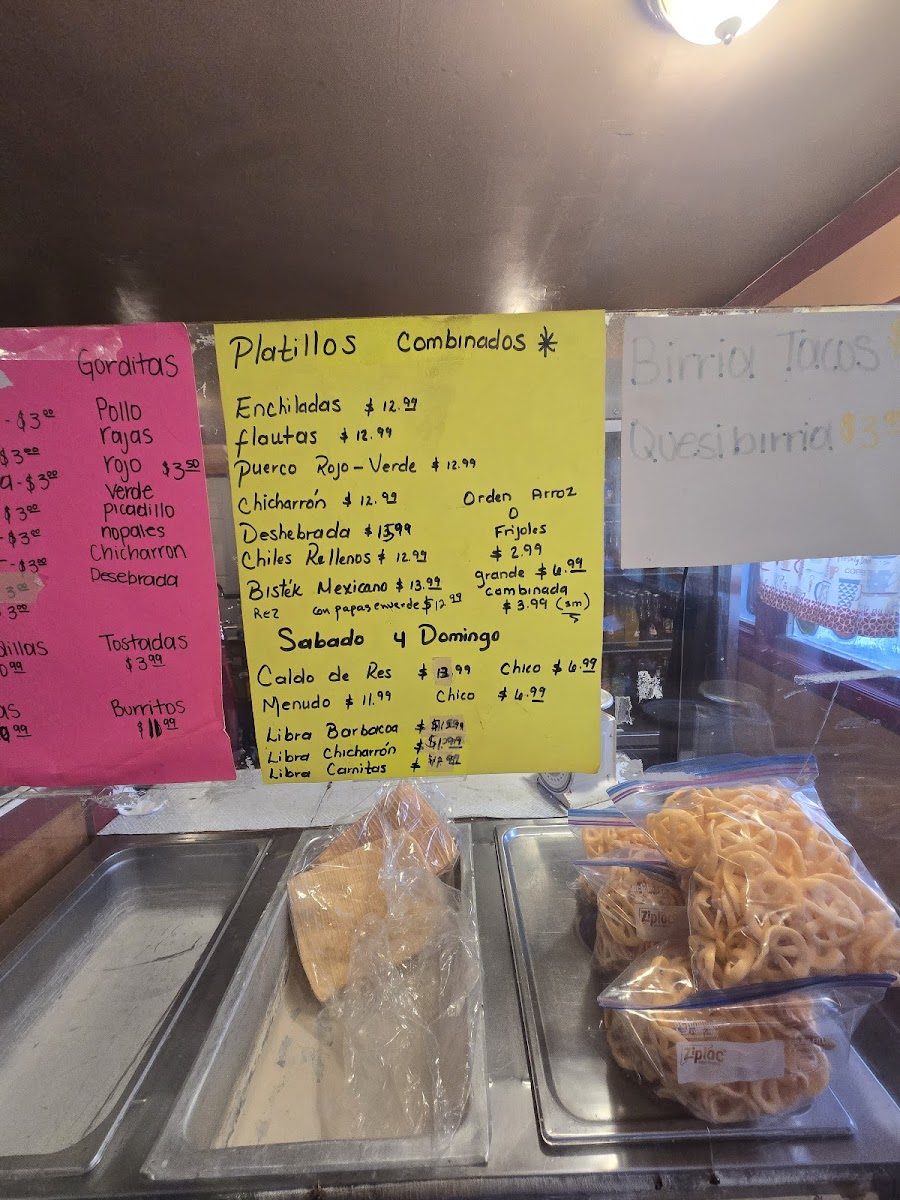 Gorditas
-$3⁰⁰
$3⁰⁰
a-$3⁰⁰
$3⁰⁰
-$3⁰⁰
-$3⁰⁰
3⁰⁰
3⁰⁰
Pollo
rajas
rojo $3⁵⁰
verde
picadillo
nopales
Chicharron
Desebrada
dillas
Tostadas
$3⁹⁹
as
Burritos
Platillos Combinados *
Enchiladas $12.99
flautas $12.99
Puerco Rojo-Verde $12.99
Chicharrón $12.99
Deshebrada
Chiles Rellenos $12.99
Bisték Mexicano $13.99
Rez con papas enverde $12.99
Orden Arroz
O
Frijoles
$2.99
grande $6.99
combinada
$3.99 (sm)
Sabado y Domingo
Caldo de Res $13.99 Chico $6.99
Menudo $11.99 Chico $6.99
Libra Barbacoa
Libra Chicharrón
Libra Carnitas
Birria Tacos
Quesibirria $3
Ziploc
Ziploc